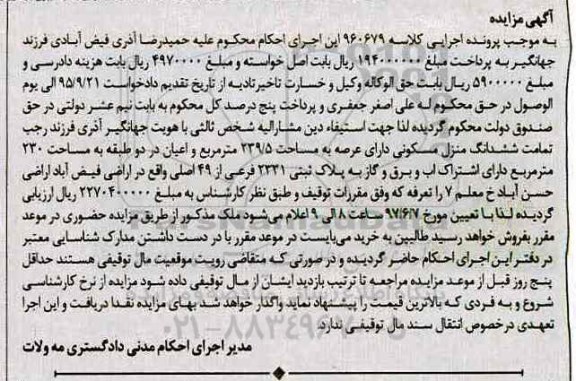 آگهی مزایده
به موجب پرونده اجرایی کلاسه ۹۶۰۶۷۹ این اجرای احکام محکوم علیه حمیدرضا آذری فیض آبادی فرزند
جهانگیر به پرداخت مبلغ ۱۹۴۰۰۰۰۰۰ ریال بابت اصل خواسته و مبلغ ۴۹۷۰۰۰۰ ریال بابت هزینه دادرسی و
مبلغ ۵۹۰۰۰۰۰ ریال بابت حق الوکاله وکیل و خسارت تاخیر تادیه از تاریخ تقدیم دادخواست ۹۵/۹/۲۱ الی یوم
الوصول در حق محکوم له علی اصغر جعفری و پرداخت پنج درصد کل محکوم به بابت نیم عشر دولتی در حق
صندوق دولت محکوم گردیده لذا جهت استیفاء دین مشارالیه شخص ثالثی با هویت جهانگیر آذری فرزند رجب
تمامت ششدانگ منزل مسکونی دارای عرصه به مساحت ۲۳۹/۵ مترمربع و اعیان در دو طبقه به مساحت ۲۳۰
مترمربع دارای اشتراک اب و برق و گاز به پلاک ثبتی ۲۳۳۱ فرعی از ۴۹ اصلی واقع در اراضی فیض آباد اراضی
حسن آباد خ معلم ۷ را تعرفه که وفق مقررات توقیف و طبق نظر کارشناس به مبلغ ۲۲۷۰۴۰۰۰۰۰ ریال ارزیابی
گردیده لذا با تعیین مورخ ۹۷/۶/۷ ساعت ۸ الی ۹ اعلام می شود ملک مذکور از طریق مزایده حضوری در موعد
مقرر بفروش خواهد رسید طالبین به خرید می‌بایست در موعد مقرر با در دست داشتن مدارک شناسایی معتبر
در دفتر این اجرای احکام حاضر گردیده و در صورتی که متقاضی رویت موقعیت مال توقیفی هستند حداقل
پنج روز قبل از موعد مزایده مراجعه تا ترتیب بازدید ایشان از مال توقیفی داده شود مزایده از نرخ کارشناسی
شروع و به فردی که بالاترین قیمت را پیشنهاد نماید واگذار خواهد شد بهای مزایده نقدا دریافت و این اجرا
تعهدی درخصوص انتقال سند مال توقیفی ندارد.
مدیر اجرای احکام مدنی دادگستری مه ولات